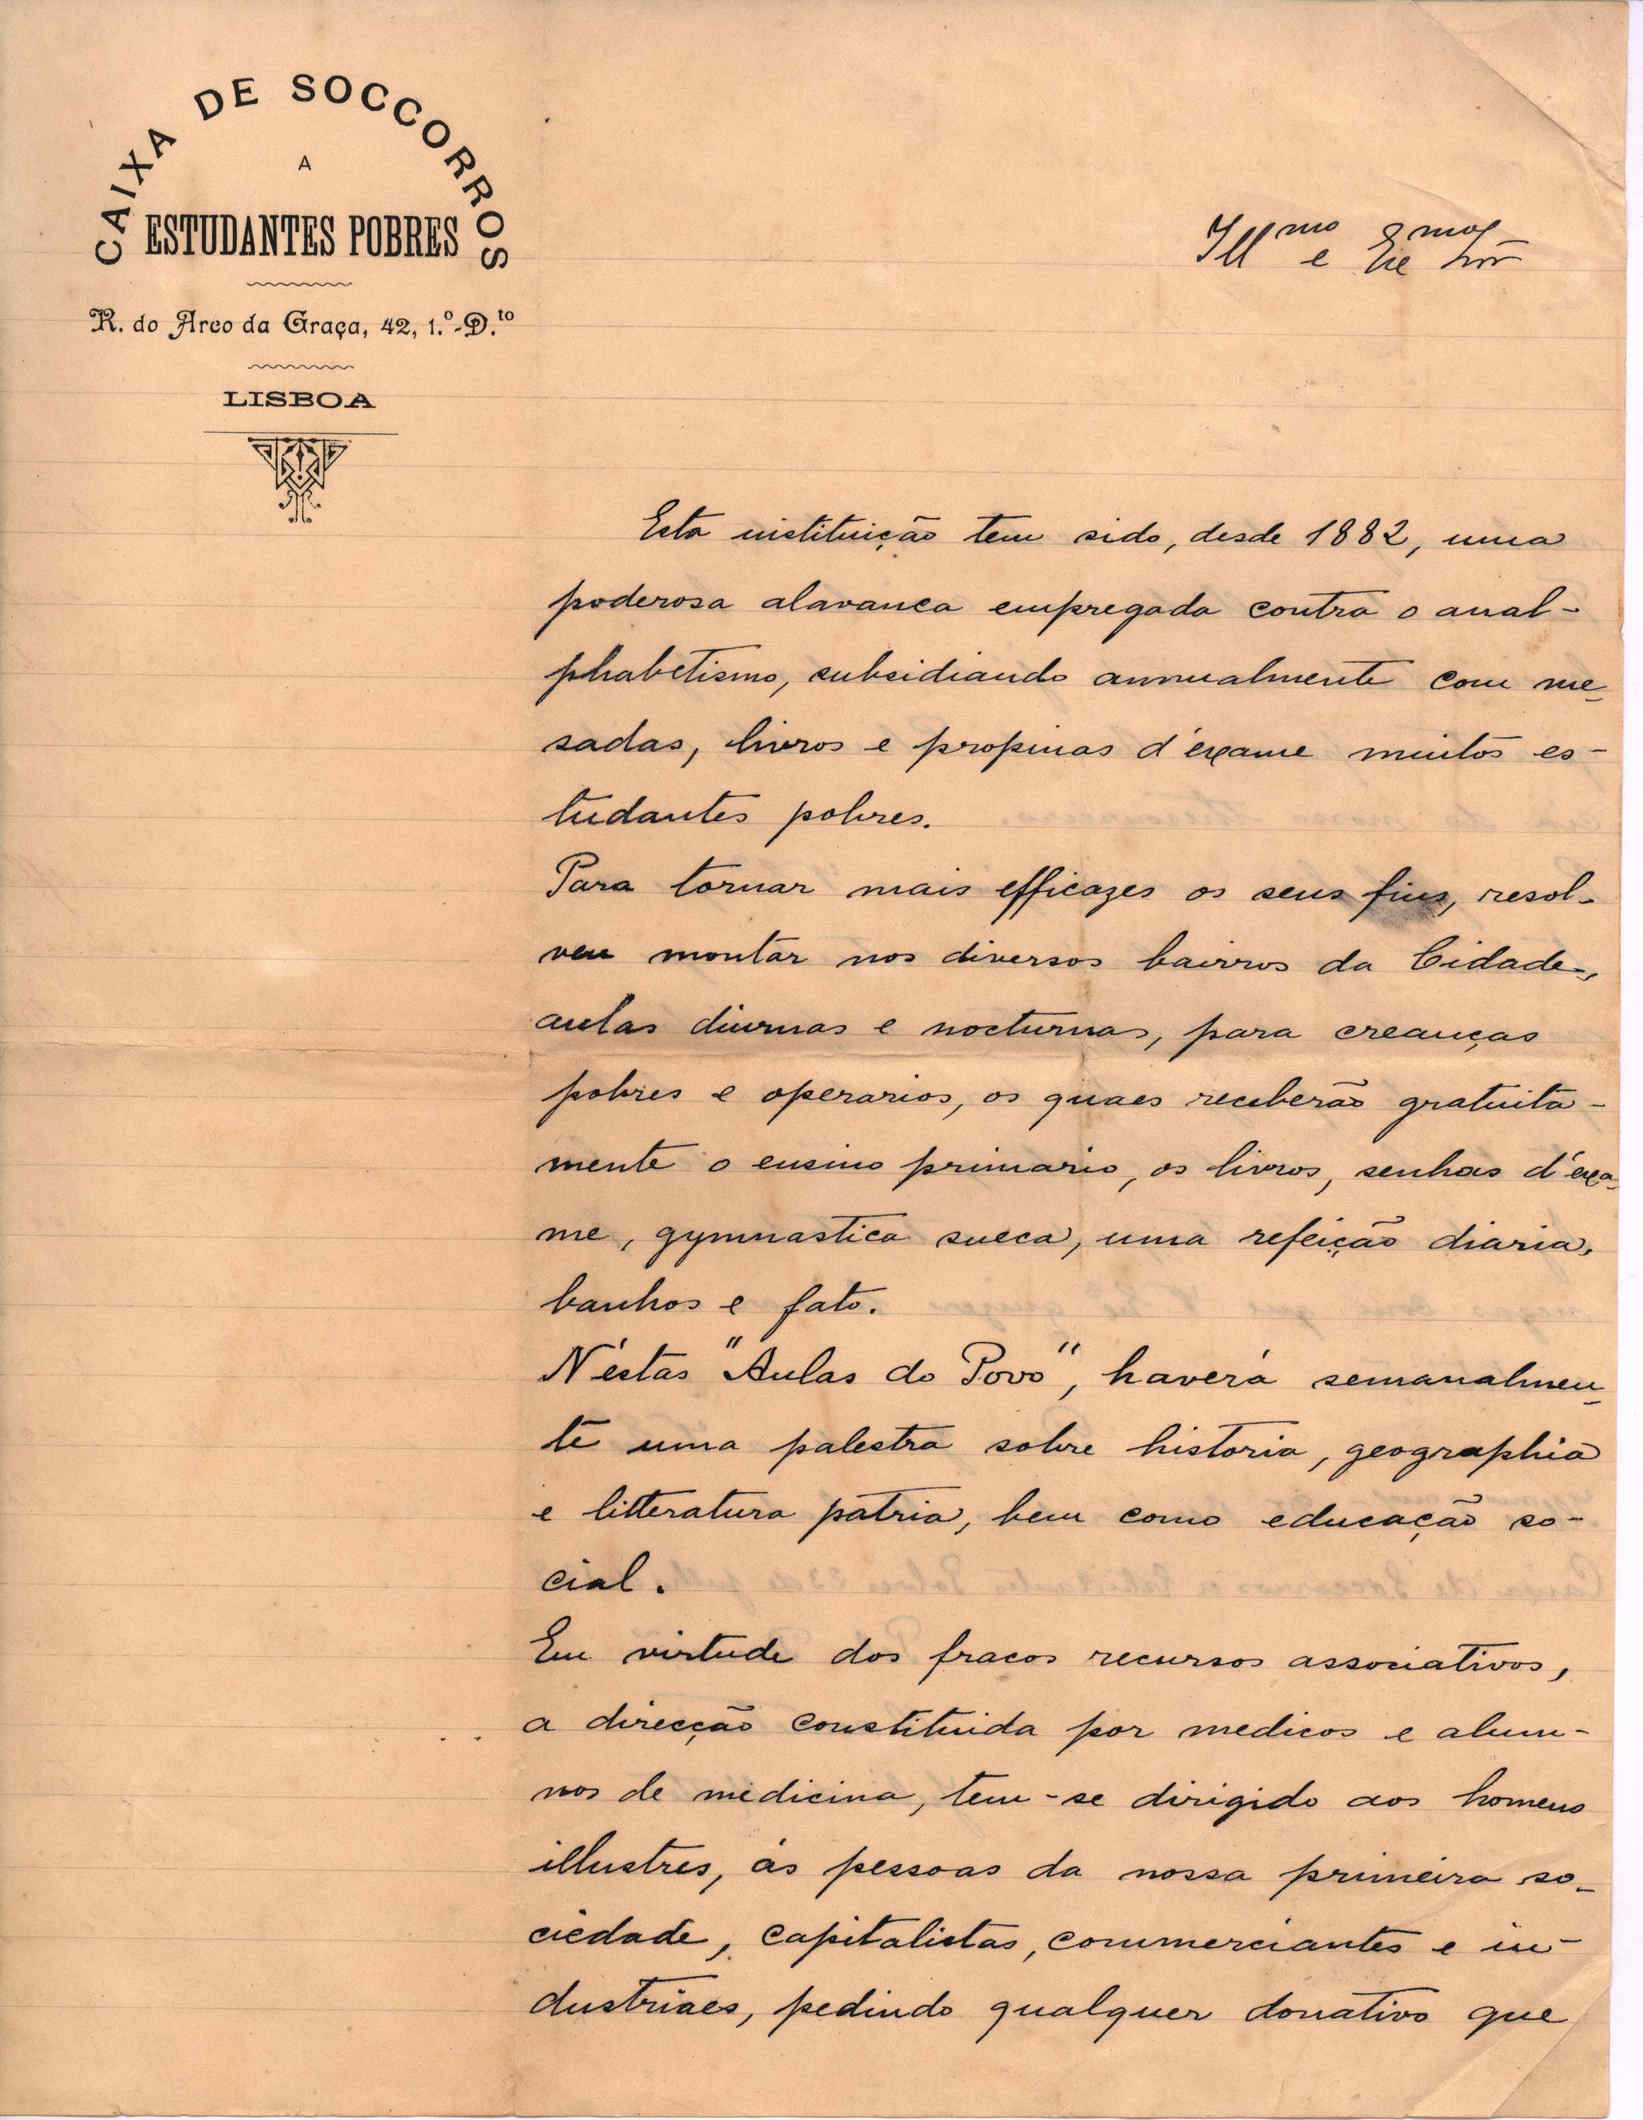 CAIXA DE SOCCORROS
A
ESTUDANTES POBRES
R. do Arco da Graça, 42, 1.º-D.to
LISBOA
Illmo e Exmo Snr
Esta instituição tem sido, desde 1882, uma
poderosa alavanca empregada contra o anal-
phabetismo, subsidiando annualmente com me-
sadas, livros e propinas d'exame muitos es-
tudantes pobres.
Para tornar mais efficazes os seus fins, resol-
veu montar nos diversos bairros da Cidade,
aulas diurnas e nocturnas, para creanças
pobres e operarios, os quaes receberão gratuita-
mente o ensino primario, os livros, senhas d'exa-
me, gymnastica sueca, uma refeição diaria,
banhos e fato.
N'estas "Aulas do Povo", haverá semanalmen-
te uma palestra sobre historia, geographia
e litteratura patria, bem como educação so-
cial.
Em virtude dos fracos recursos associativos,
a direcção constituida por medicos e alum-
nos de medicina, tem-se dirigido aos homens
illustres, ás pessoas da nossa primeira so-
ciedade, capitalistas, commerciantes e in-
dustriaes, pedindo qualquer donativo que